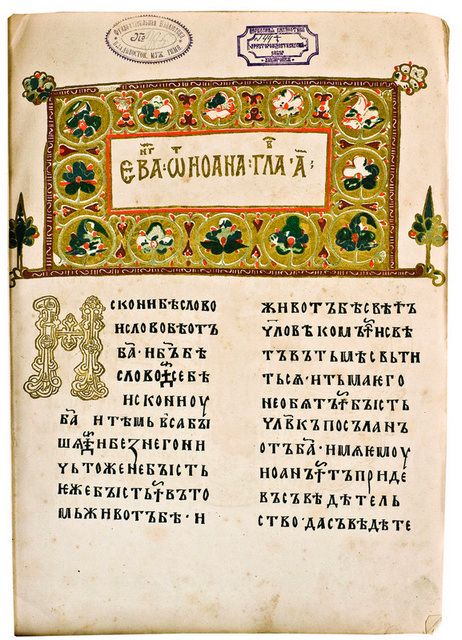 ЕВАНГ·ѾТ ИОАНА·ГЛАВ·А҃:
ИСКОНИБѢСЛОВО
ИСЛОВОБѢОТЪ
БА҃·ИБЪ҃БѢ
СЛОВО·СЕБѢ
ИСКОНИОУ
БА҃ ИТѢМЬВЬСАБЫ
ШѦ·ИБЕЗНЕГОНИ
ЧЬТОЖЕНЕБЫСТЬ
ѤЖЕБЫСТЬ·ВЪТО
МЬЖИВОТЪБѢ·И
ЖИВОТЪБѢСВѢТЪ
ЧЛОВѢКОМЪ·ИСВѢ
ТЪВЪТЬМѢСВЬТИ
ТЬСѦ·ИТЬМАѤГО
НЕОБѦТЪ·БЫСТЬ
ЧЛВ҃КЪПОСЪЛАНЪ
ОТЪБА҃·ИМѦѤМОУ
ИОАНЪ·ТЪПРИДЕ
ВЪСЪВѢДѢТЕЛЬ
СТВО·ДАСЪВѢДѢТЕ